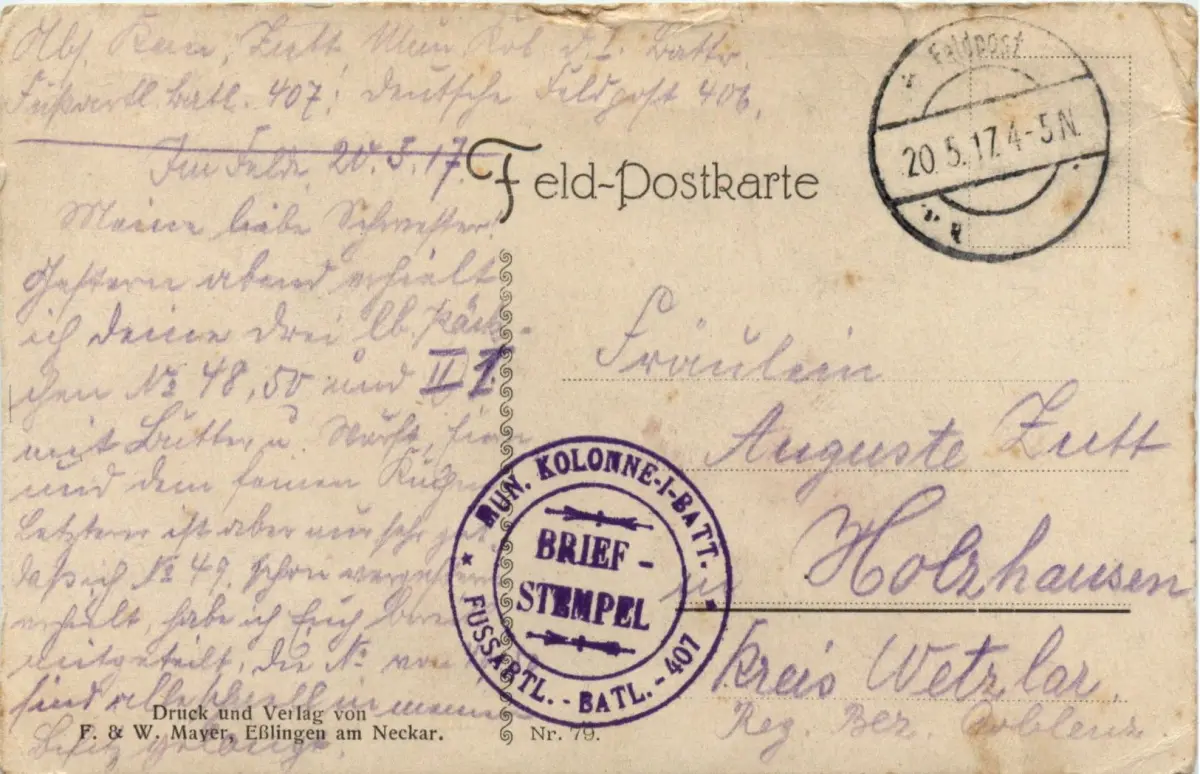 Abs. Kan. Zutt Mun. Kol. d. I. Battr.
Fußartl. Batl. 407. Deutsche Feldpost 406.
Im Felde, 20.5.17.
Feld-Postkarte
Feldpost
20.5.17.4-5N.
Meine liebe Schwester!
Gestern abend erhielt
ich deine drei lb. Päck-
chen No 48, 50 und II
mit Butter, u. Wurst,
und dem feinen Kuchen
Letzterer ist aber nur sehr gut.
daß ich No 49, schon vorgestern
erhielt, habe ich Euch
mitgeteilt, die No von
sind alle schnell in meinen
Besitz gelangt.
Fräulein
Auguste Zutt
in Holzhausen
Kreis Wetzlar.
Reg. Bez. Coblenz
MUN. KOLONNE-I-BATT.
BRIEF-
STEMPEL
FUSSARTL.-BATL.-407
Druck und Verlag von
F. & W. Mayer, Eßlingen am Neckar.
Nr. 79.